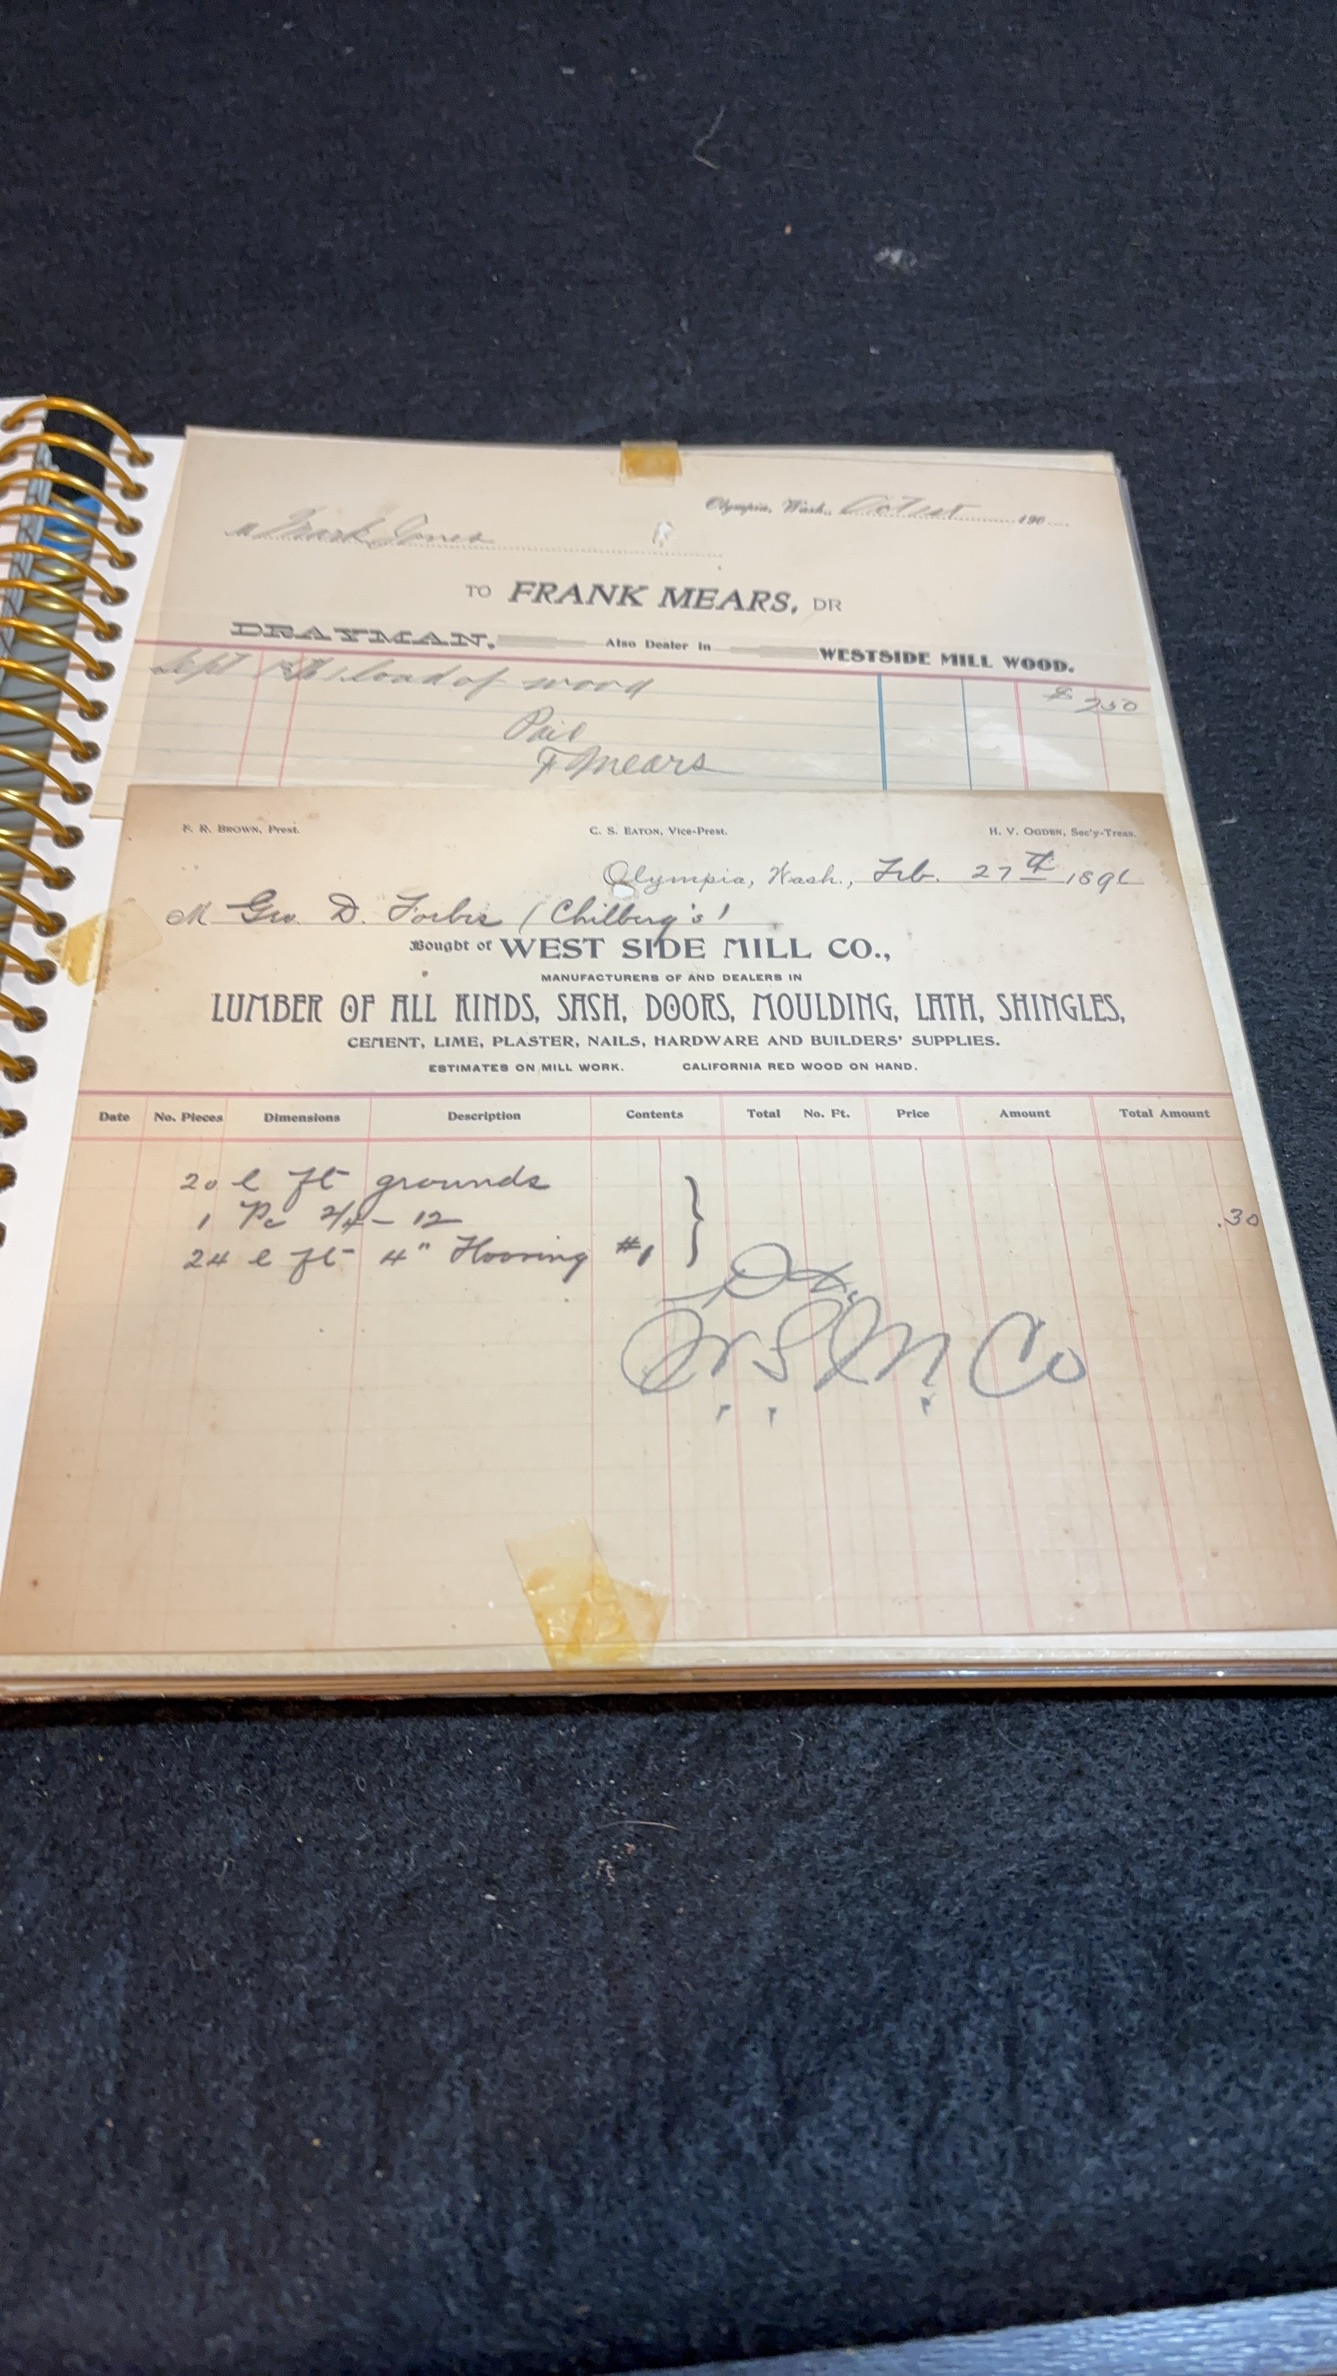 Olympia, Wash., Oct 1st 190
M Mark Jones
TO FRANK MEARS, DR
DRAYMAN, Also Dealer in WESTSIDE MILL WOOD.
Sept 1 load of wood $ 2 50
Paid
F Mears
F. R. BROWN, Prest. C. S. EATON, Vice-Prest. H. V. OGDEN, Sec'y-Treas.
Olympia, Wash., Feb. 27th 1896
M Geo. D. Forbes (Chilberg's)
Bought of WEST SIDE MILL CO.,
MANUFACTURERS OF AND DEALERS IN
LUMBER OF ALL KINDS, SASH, DOORS, MOULDING, LATH, SHINGLES,
CEMENT, LIME, PLASTER, NAILS, HARDWARE AND BUILDERS' SUPPLIES.
ESTIMATES ON MILL WORK. CALIFORNIA RED WOOD ON HAND.
Date No. Pieces Dimensions Description Contents Total No. Ft. Price Amount Total Amount
20 l ft grounds
1 Pc 2/4 - 12 .30
24 l ft 4" Flooring #1
W. S. M. Co